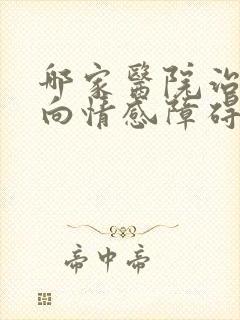 郍家醫院治
向情感障碍
帝中帝